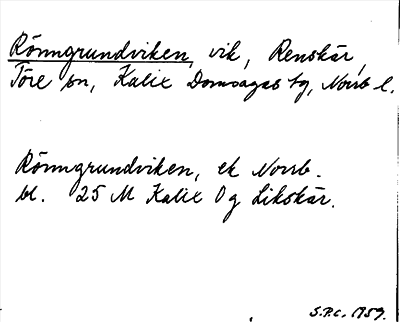 Rönngrundviken, vik, Renskär,
Töre sn, Kalix Domsagas tg, Norrb l.
Rönngrundviken, ek Norrb.
bl. 25 M Kalix Og Likskär.
S.P.C. 1959.